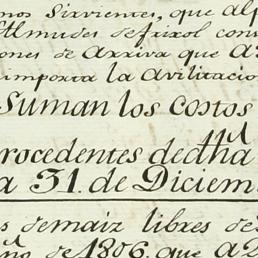 mos Sirvientes, que alp
Almudes de frixol cons
ones de Arriva que a
importa la Avilitacio
Suman los costos
rocedentes de dthã
a 31. de Diciem
s de maiz libres de
año de 1806. que a